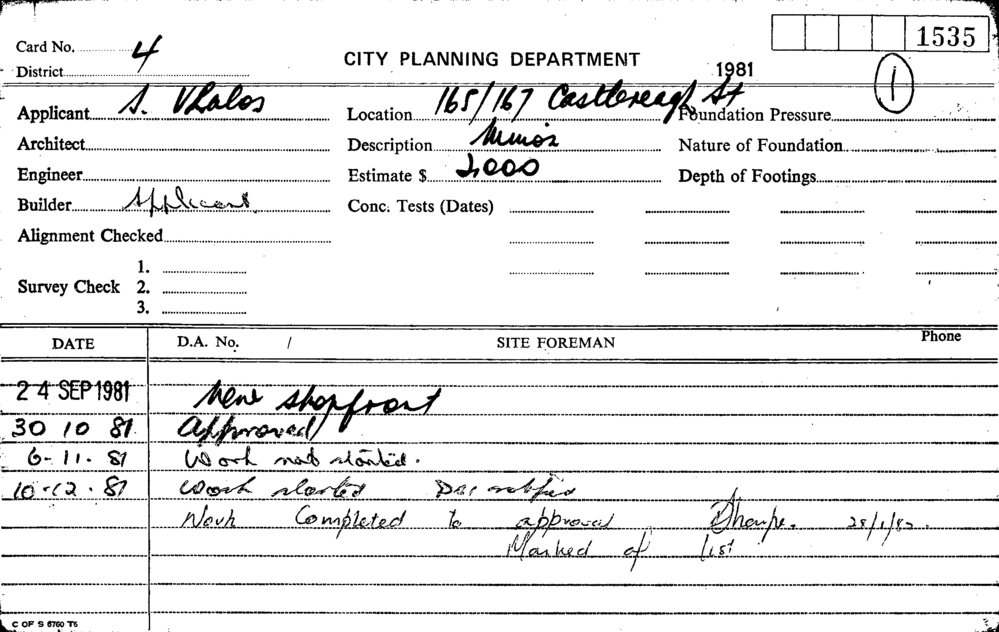 1535
Card No. 4
District
CITY PLANNING DEPARTMENT
1981
1
Applicant S. Vlalos
Location 165/167 Castlereagh St
Foundation Pressure
Architect
Description Minor
Nature of Foundation
Engineer
Estimate $ 2,000
Depth of Footings
Builder Applicant
Conc. Tests (Dates)
Alignment Checked
Survey Check 1.
2.
3.
DATE D.A. No. / SITE FOREMAN Phone
24 SEP 1981 New shopfront
30 10 81 Approved
6-11-81 Work not started.
10-12-81 Work started notified
Work Completed to approval Sharpe. 28/1/82.
Marked of list
C OF S 6760 T6